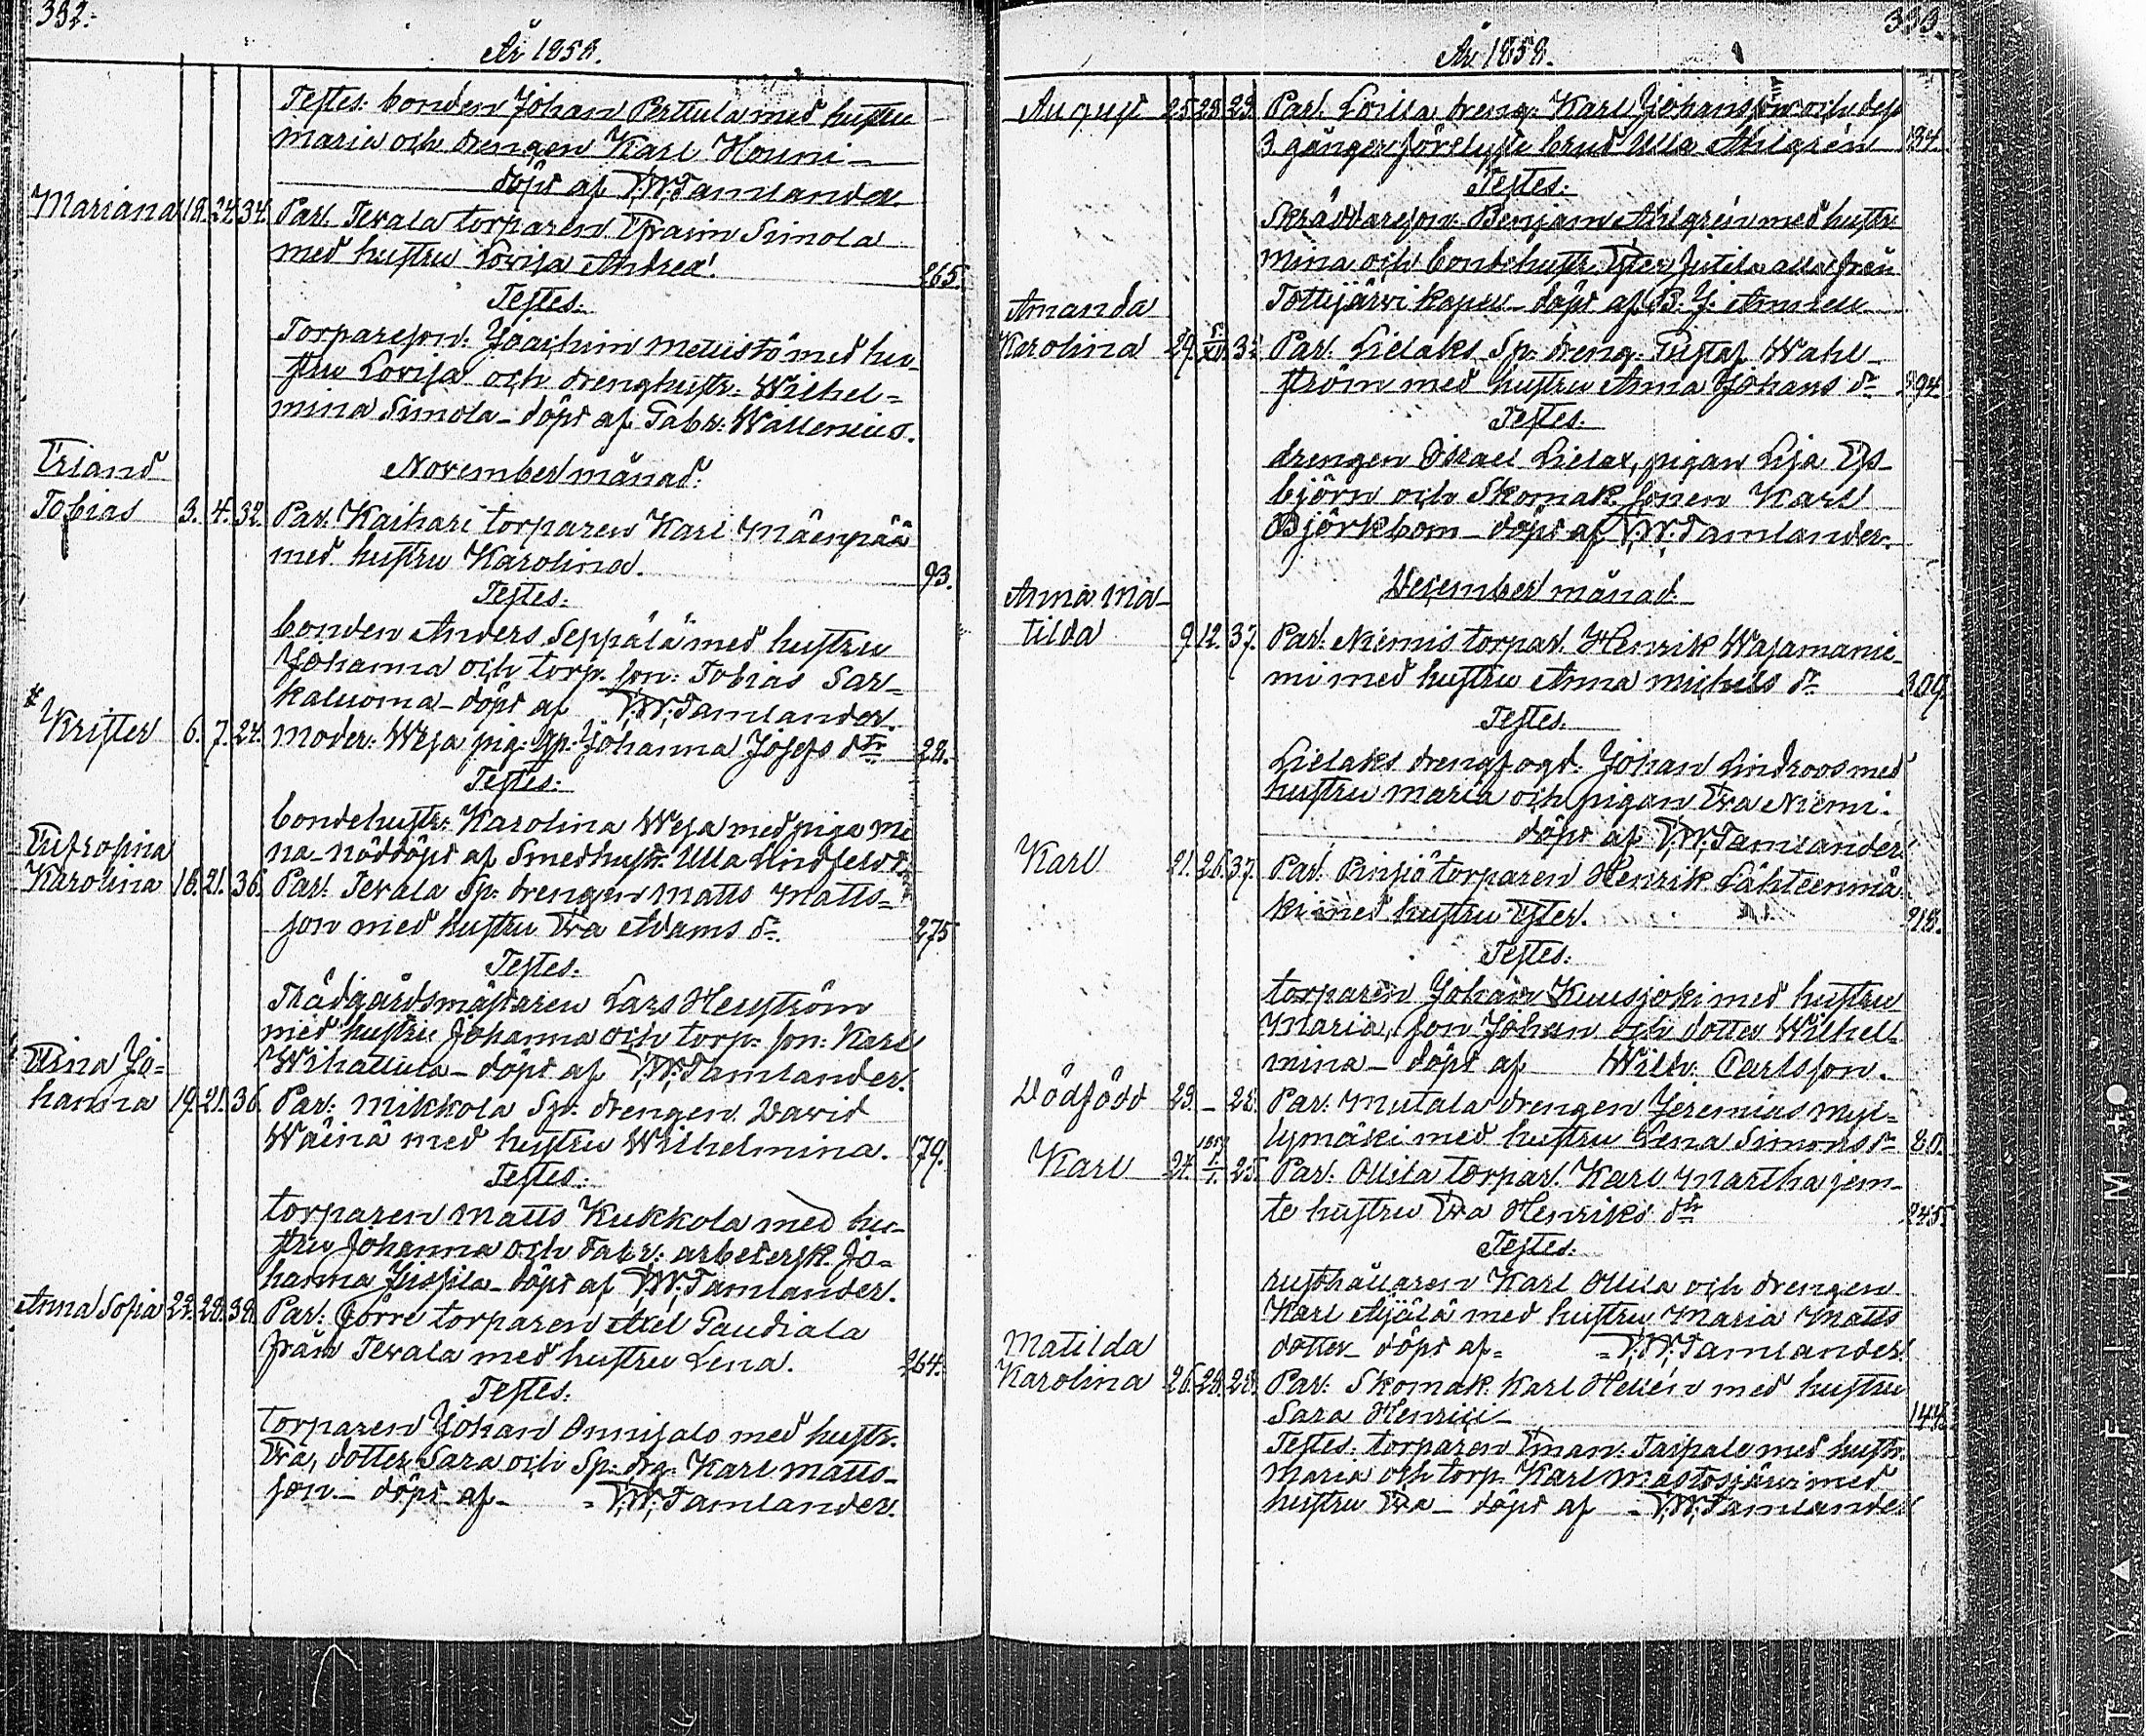 332.
År 1858.
Testes: bonden Johan Perttula med hustru
Maria och drengen Karl Houni
döpt af F.W. Tamlander
Mariana 18. 24. 34. Par. Tevala torparen Efraim Simola
med hustru Lovisa Andree!
265.
Testes:
Torpareson: Joachim Mellistö med hu-
stru Lovisa och drenghustr: Wilhel=
mina Simola - döpt af Gabr: Wallenius.
Erland
November månad.
Tobias 3. 4. 32. Par. Kaihari torparen Karl Mäenpää
med hustru Karolina. 93.
Testes:
bonden Anders Seppälä med hustru
Johanna och torp. son: Tobias Sar=
kaluoma - döpt af F.W. Tamlander
* Krister 6. 7. 24. Moder: Wesa pig: Johanna Josefs dtr 28.
Testes:
bondehustr: Karolina Wesa med piga Mi
Eufrosina na - nöddöpt af Smedhustr. Ulla Lindfeldt
Karolina 18. 21. 36. Par. Tevala Sp: drengen Matts Matts=
son med hustru Eva Adams dr. 275
Testes.
Trädgårdsmästaren Lars Hellström
med hustru Johanna och torp: son: Karl
Wihattula - döpt af F.W. Tamlander.
Erina Jo=
hanna 19. 21. 36. Par: Mikkola Sp: drengen David
Wäinä med hustru Wilhelmina. 179.
Testes:
torparen Matts Kukkola med hu-
stru Johanna och Fabr: arbetersk. Jo=
hanna Jussila - döpt af F.W. Tamlander.
Anna Sofia 22. 28. 38. Par: Corre torparen Axel Paudiala
från Tevala med hustru Lena. 264.
Testes.
torparen Johan Onnisalo med hustr.
Eva, dotter Sara och Sp: drg: Karl Matts-
son - döpt af - = F.W. Tamlander.
333.
År 1858.
August 25. 28. 29. Par. Lovisa dreng: Karl Johansson och dess
3 gånger förelyste brud Ulla Ahlgrén 134.
Testes:
Skräddareson: Benjam Ahlgrén med hustr
Mina och bondehustr. Ester Jutila alla från
Tottijärvi Kapell - döpt af B. J.
Amanda
Karolina 29. 5/XII. 32 Par: Lielaks Sp: dreng: Gustaf Wahl-
ström med hustru Anna Johans dr 294.
Testes.
drengen Israel Lielax, pigan Lisa Es-
björn och Skomak. sonen Karl
Björkbom - döpt af F.W. Tamlander.
December månad
Anna Ma-
tilda 9. 12. 37. Par: Niemis torpar. Henrik Wasamanie-
mi med hustru Anna Michels dr 309.
Testes.
Lielaks drengfogd: Johan Lindroos med
hustru Maria och pigan Eva Niemi.
döpt af F.W. Tamlander.
Karl 21. 26. 37. Par. Pinsiö torparen Henrik Lähteenmä
ki med hustru Ester. 218.
Testes:
torparen Johan Kuusjoki med hustru
Maria, son Johan och dotter Wilhel-
mina - döpt af Wilh. Carlsson.
Dödfödd 23. - 28. Par: Mutala drengen Jeremias Myl-
lymäki med hustru Lena Simons dr 80.
Karl 24. 1859 1/1. 25. Par: Ollila torpar. Karl Martha jem-
te hustru Eva Henriks dtr 245.
Testes:
rusthållaren Karl Ollila och drengen
Karl Äijälä med hustru Maria Matts
dotter - döpt af = = F.W. Tamlander.
Matilda
Karolina 26. 28. 28. Par: Skomak. Karl Helién med hustru
Sara Henrici - 144.
Testes: torparen Eman: Taipale med hustr.
Maria och torp. Karl Mastosjärvi med
hustru Eva - döpt af - F.W. Tamlander
T Y ▲ F I L M